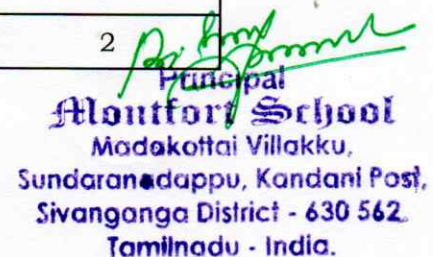 2
Principal
Montfort School
Madakottai Villakku,
Sundaranadappu, Kandani Post,
Sivanganga District - 630 562.
Tamilnadu - India.